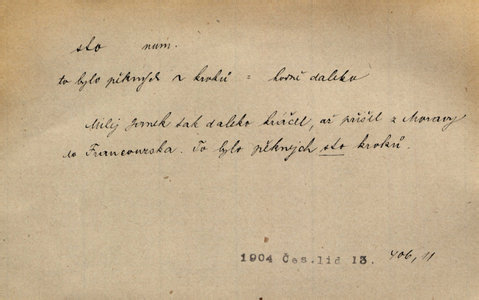 sto num.
to bylo pěkných ~ kroků = hodně daleko
Milej Honek tak daleko kráčel, až přišel z Moravy
do Francouzska. To bylo pěkných sto kroků.
1904 Čes. lid 13. 406, 11